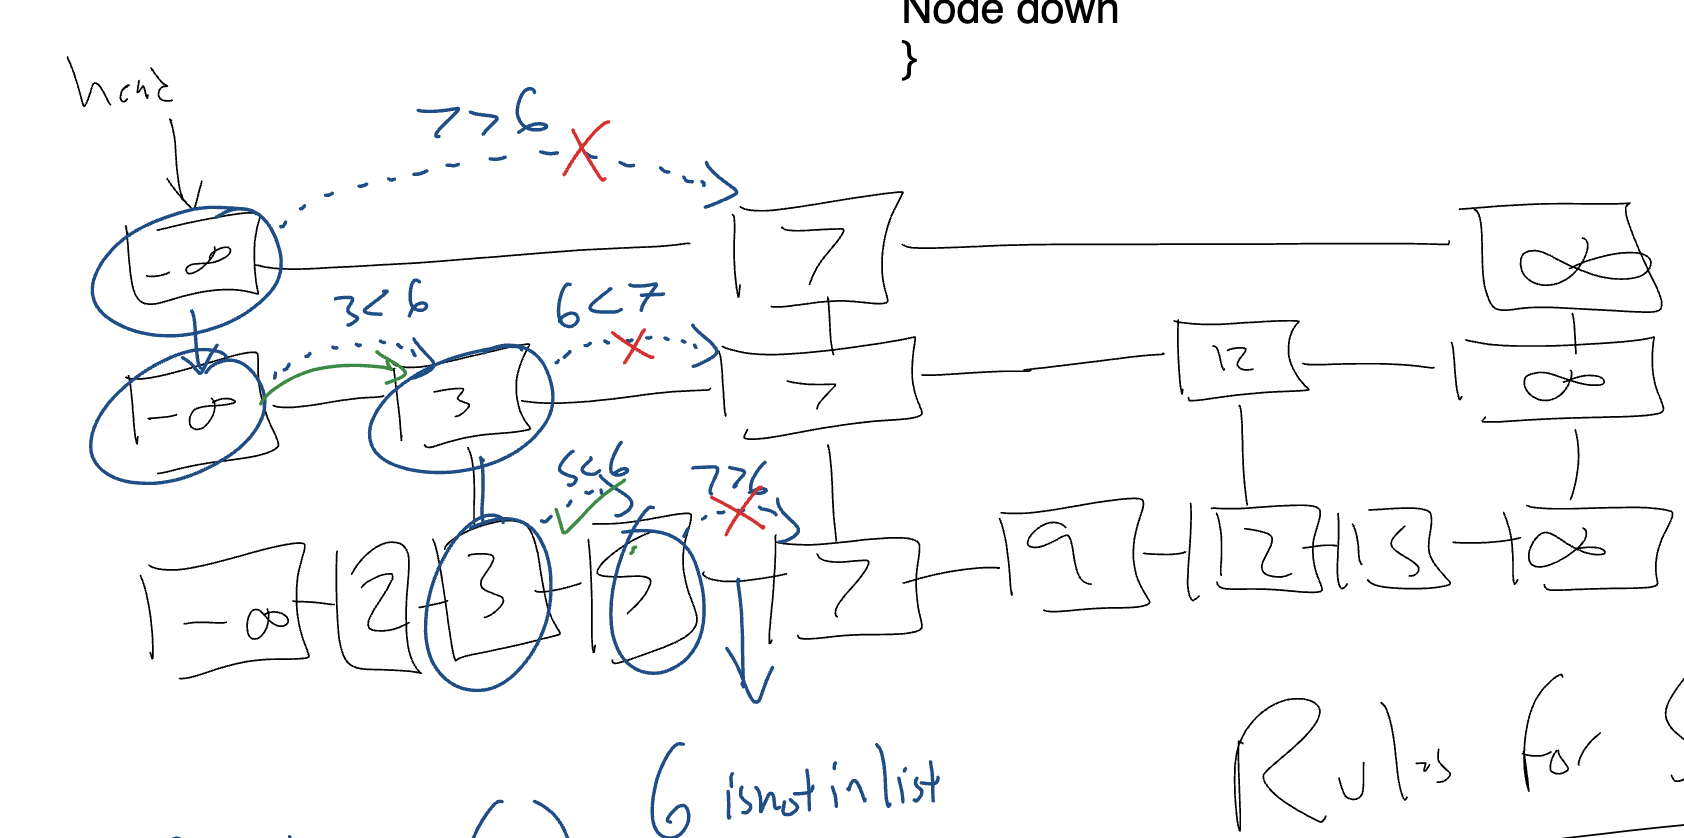 Node down
}
head
7 > 6
-∞ 7 ∞
3 < 6 6 < 7
-∞ 3 7 12 ∞
5 < 6 7 > 6
-∞ 2 3 5 7 9 12 13 ∞
6 is not in list
Rules for S